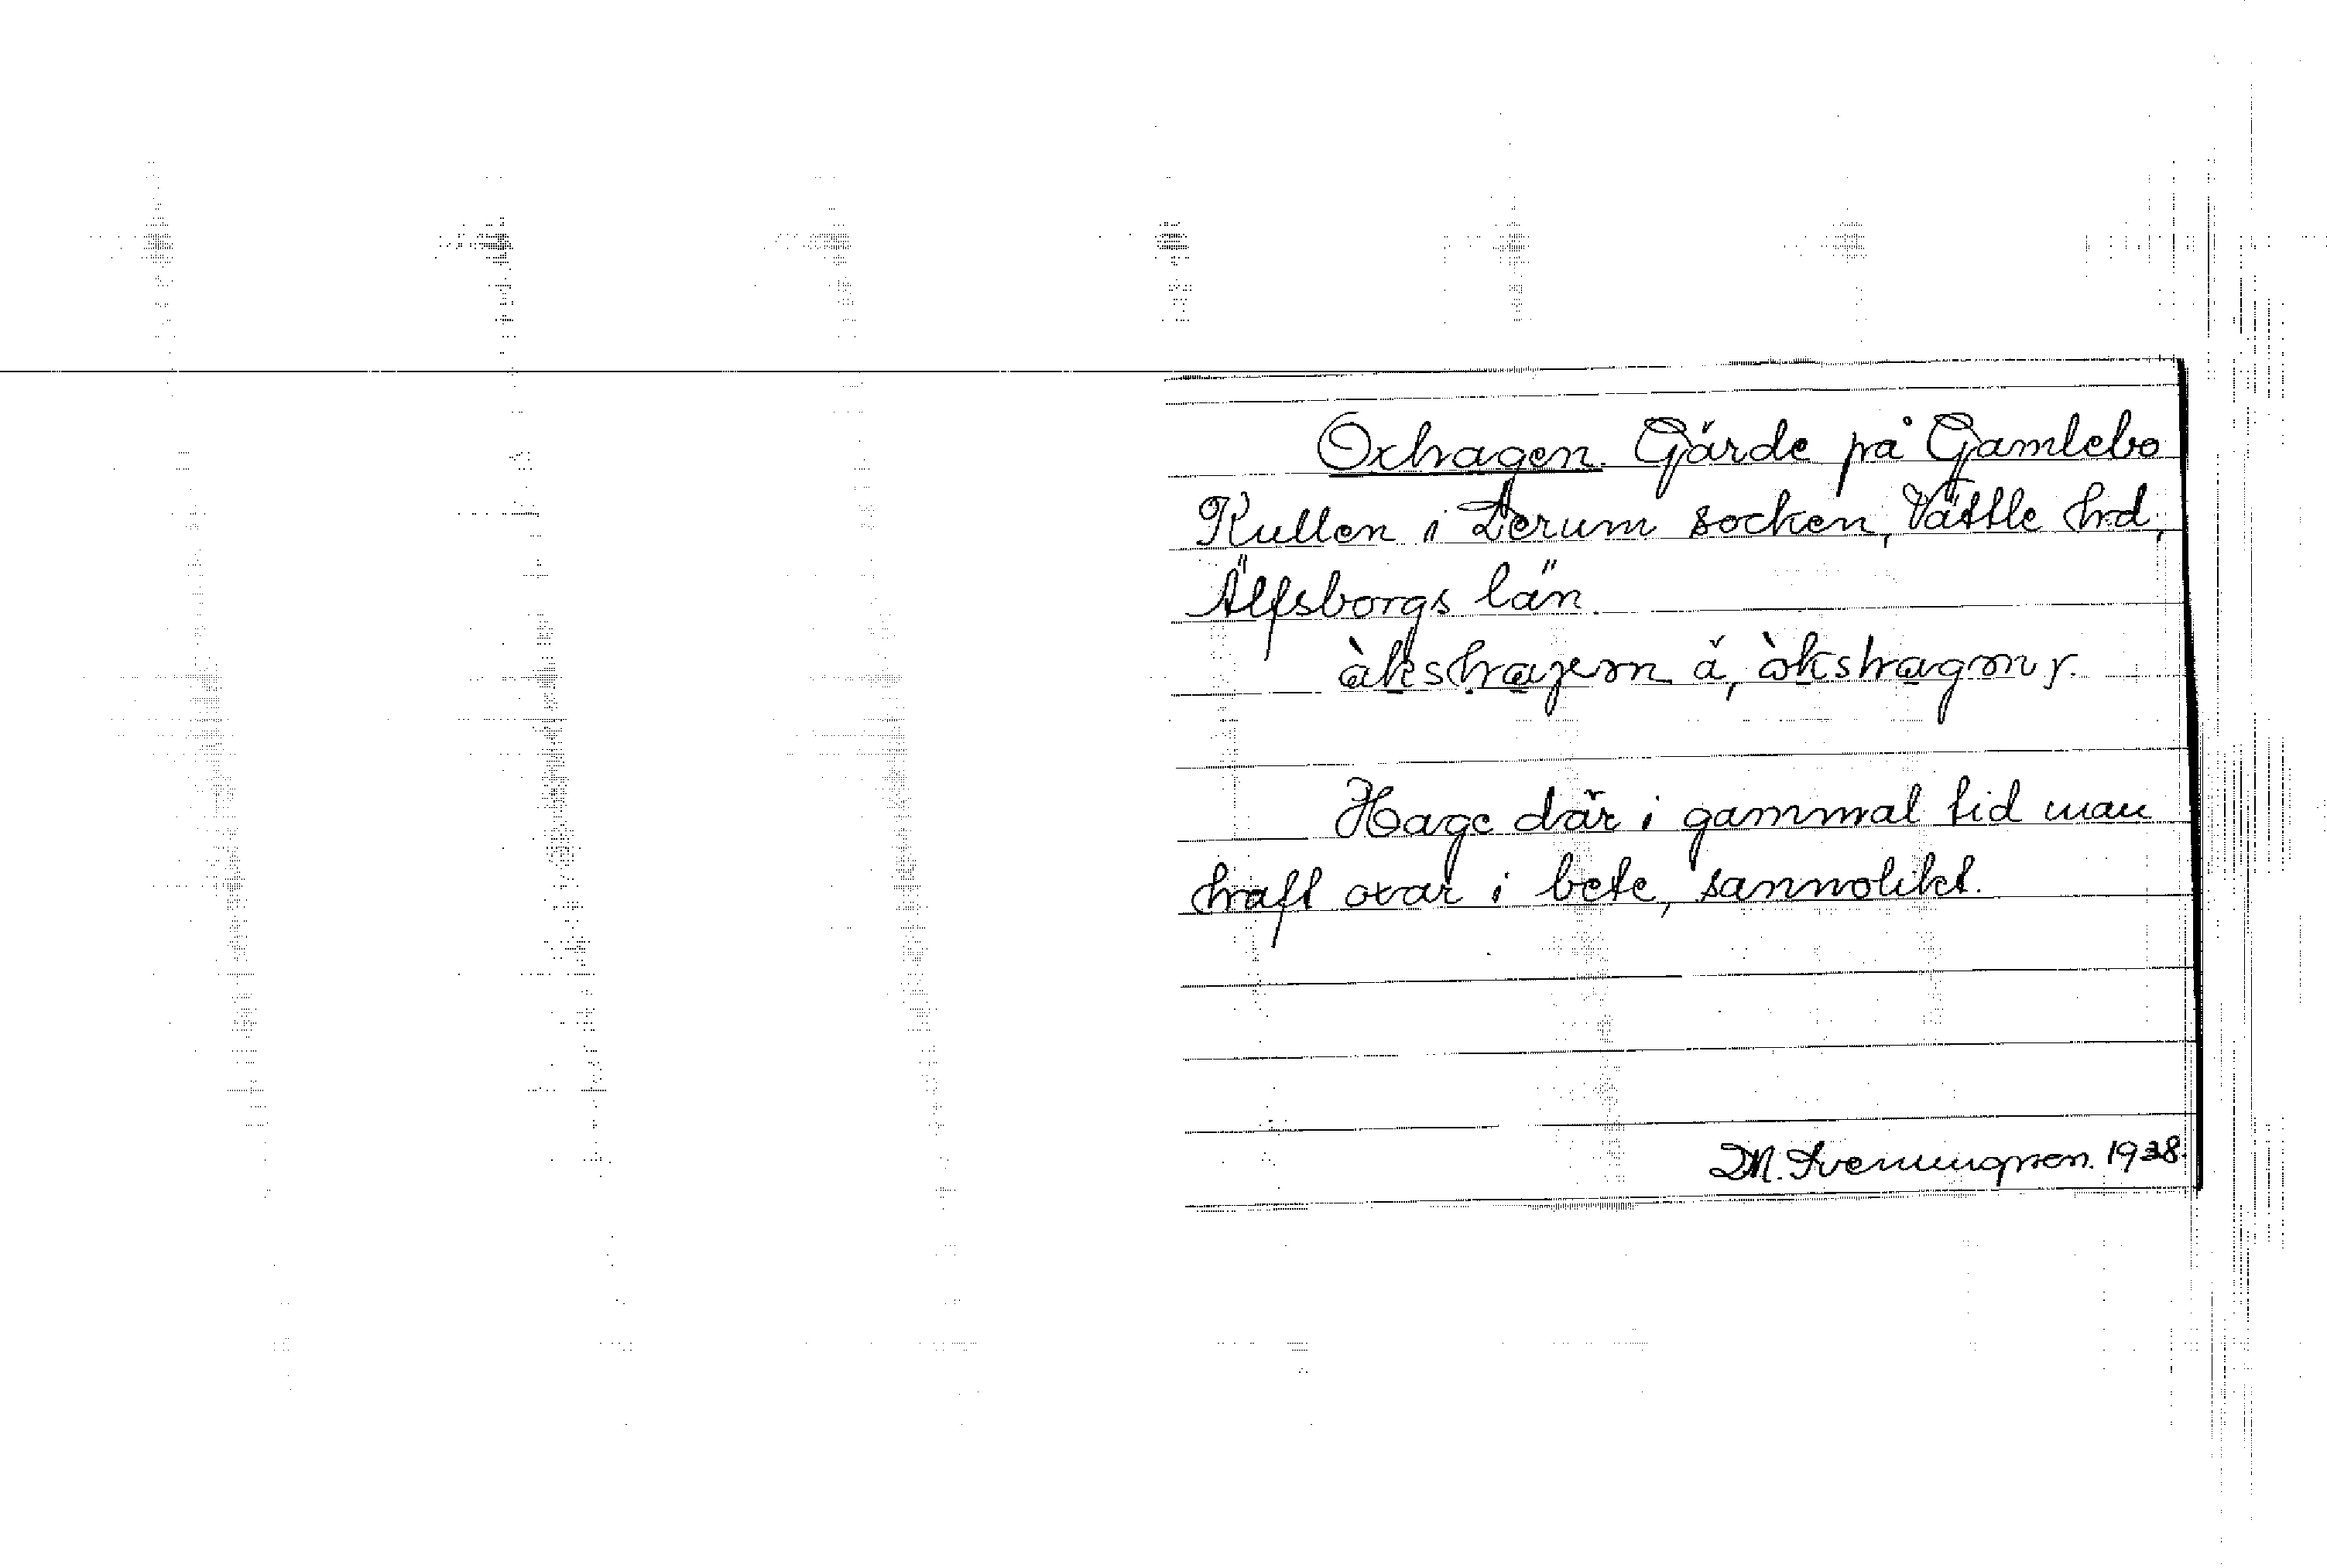 Oxhagen. Gärde på Gamlebo
Kullen i Lerum socken, Vättle hrd,
Älfsborgs län.
àkshagen ä, òkshagon y.
Hage där i gammal tid man
haft oxar i bete, sannolikt.
M. Svenungson. 1938.